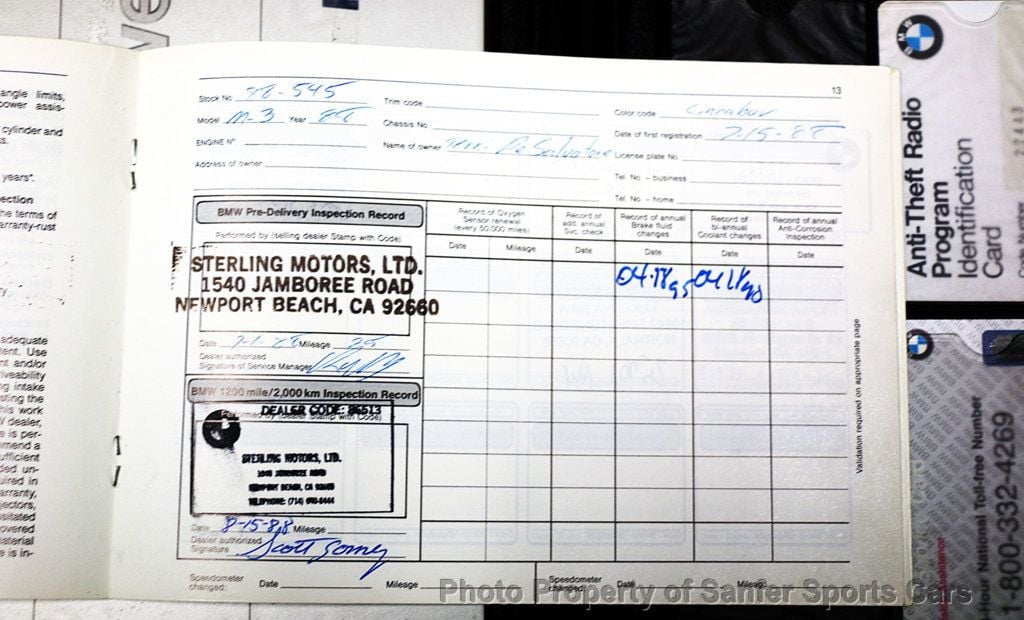 angle limits,
power assis-
cylinder and
years".
ection
he terms of
arranty-rust
adequate
ent. Use
nt and/or
iveability
ng intake
sting the
his work
dealer,
e is per-
mend a
ufficient
ded un-
uired in
arranty,
jectors,
sitated
overed
aterial
e is in-
13
Stock No. T8-545 Trim code Color code Cinnabar
Model M-3 Year 88 Chassis No. Date of first registration 7-15-88
ENGINE Nº. Name of owner Terri DeSalvatore License plate No.
Address of owner Tel. No. - business
Tel. No. - home
BMW Pre-Delivery Inspection Record
Performed by (selling dealer Stamp with Code)
STERLING MOTORS, LTD.
1540 JAMBOREE ROAD
NEWPORT BEACH, CA 92660
Date 7-1-88 Mileage 25
Dealer authorized
Signature of Service Manager
BMW 1200 mile/2,000 km Inspection Record
Performed by (dealer Stamp with Code)
DEALER CODE: 86513
STERLING MOTORS, LTD.
1540 JAMBOREE ROAD
NEWPORT BEACH, CA 92660
TELEPHONE: (714)
Date 8-15-88 Mileage
Dealer authorized
Signature Scott
Record of Oxygen
Sensor renewal
(every 50,000 miles)
Date Mileage
Record of
add. annual
Svc. check
Date
Record of annual
Brake fluid
changes
Date
04.18 95
Record of
bi-annual
Coolant changes
Date
Record of annual
Anti-Corrosion
Inspection
Date
Validation required on appropriate page
Speedometer
changed: Date Mileage
Speedometer
changed: Date Mileage
BMW
Anti-Theft Radio
Program
Identification
Card
Code Number
22443
24-Hour National Toll-free Number
1-800-332-4269
Photo Property of Sanfer Sports Cars